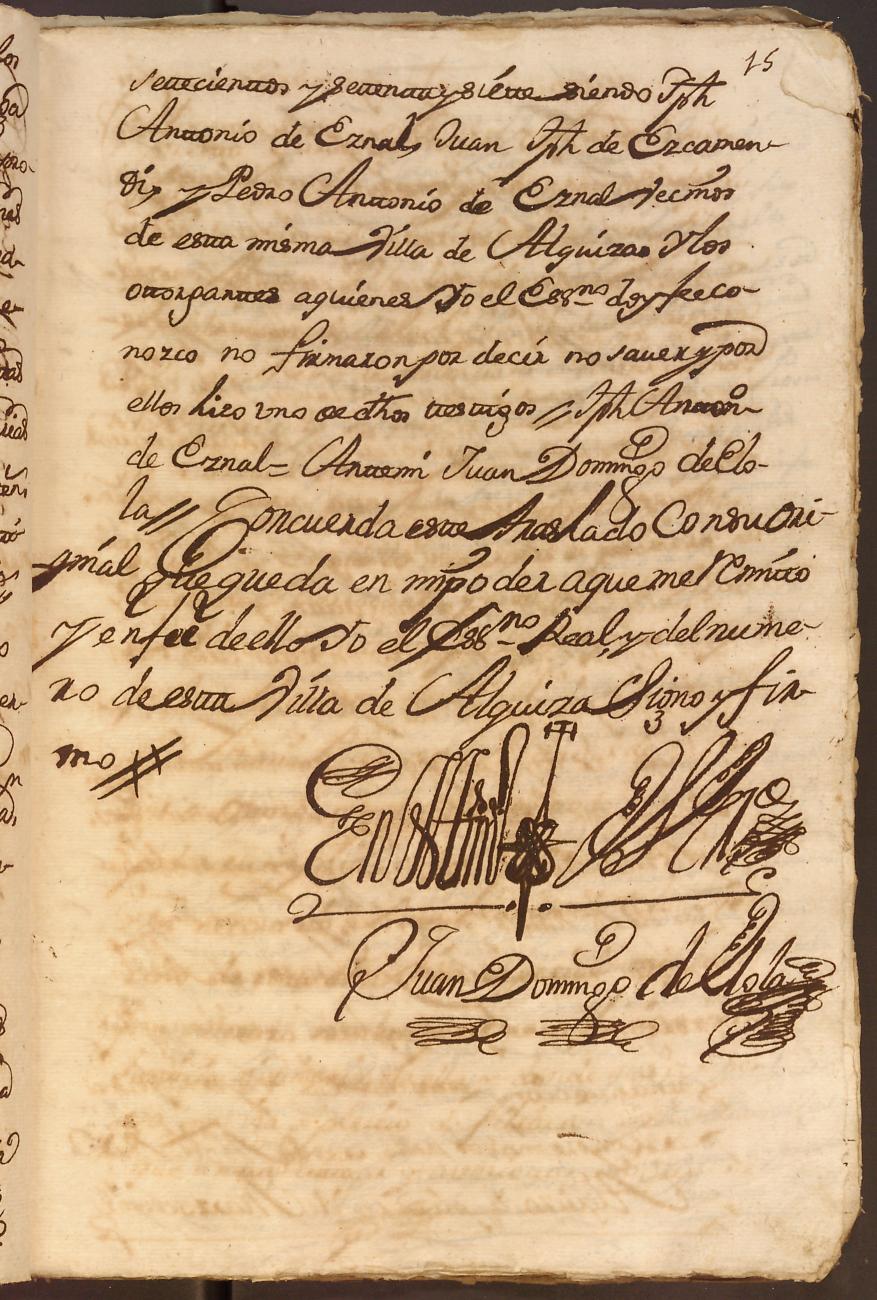 15
settecienttos y settenttaysiette siendo Jph
Anttonio de Eznal, Juan Jph de Ezcamen-
di, y Pedro Anttonio de Eznal Vecinos
de estta misma Villa de Alquiza, Ylos
ottorganttes aquienes Yo el Essno doyfeeco-
nozco no firmaron por decir no saver y por
ellos hizo vno de dhos ttesttigos // Jph Antton
de Eznal = Anttemi Juan Domingo de Llo-
la // Concuerda estte traslado Consu ori-
ginal que queda en mi poder aqueme Remitto
y enfee deello Yo el Essno Real, y delnume-
ro de estta Villa de Alquiza Signo y fir-
mo
En testimo de Verd
Juan Domingo de Llola